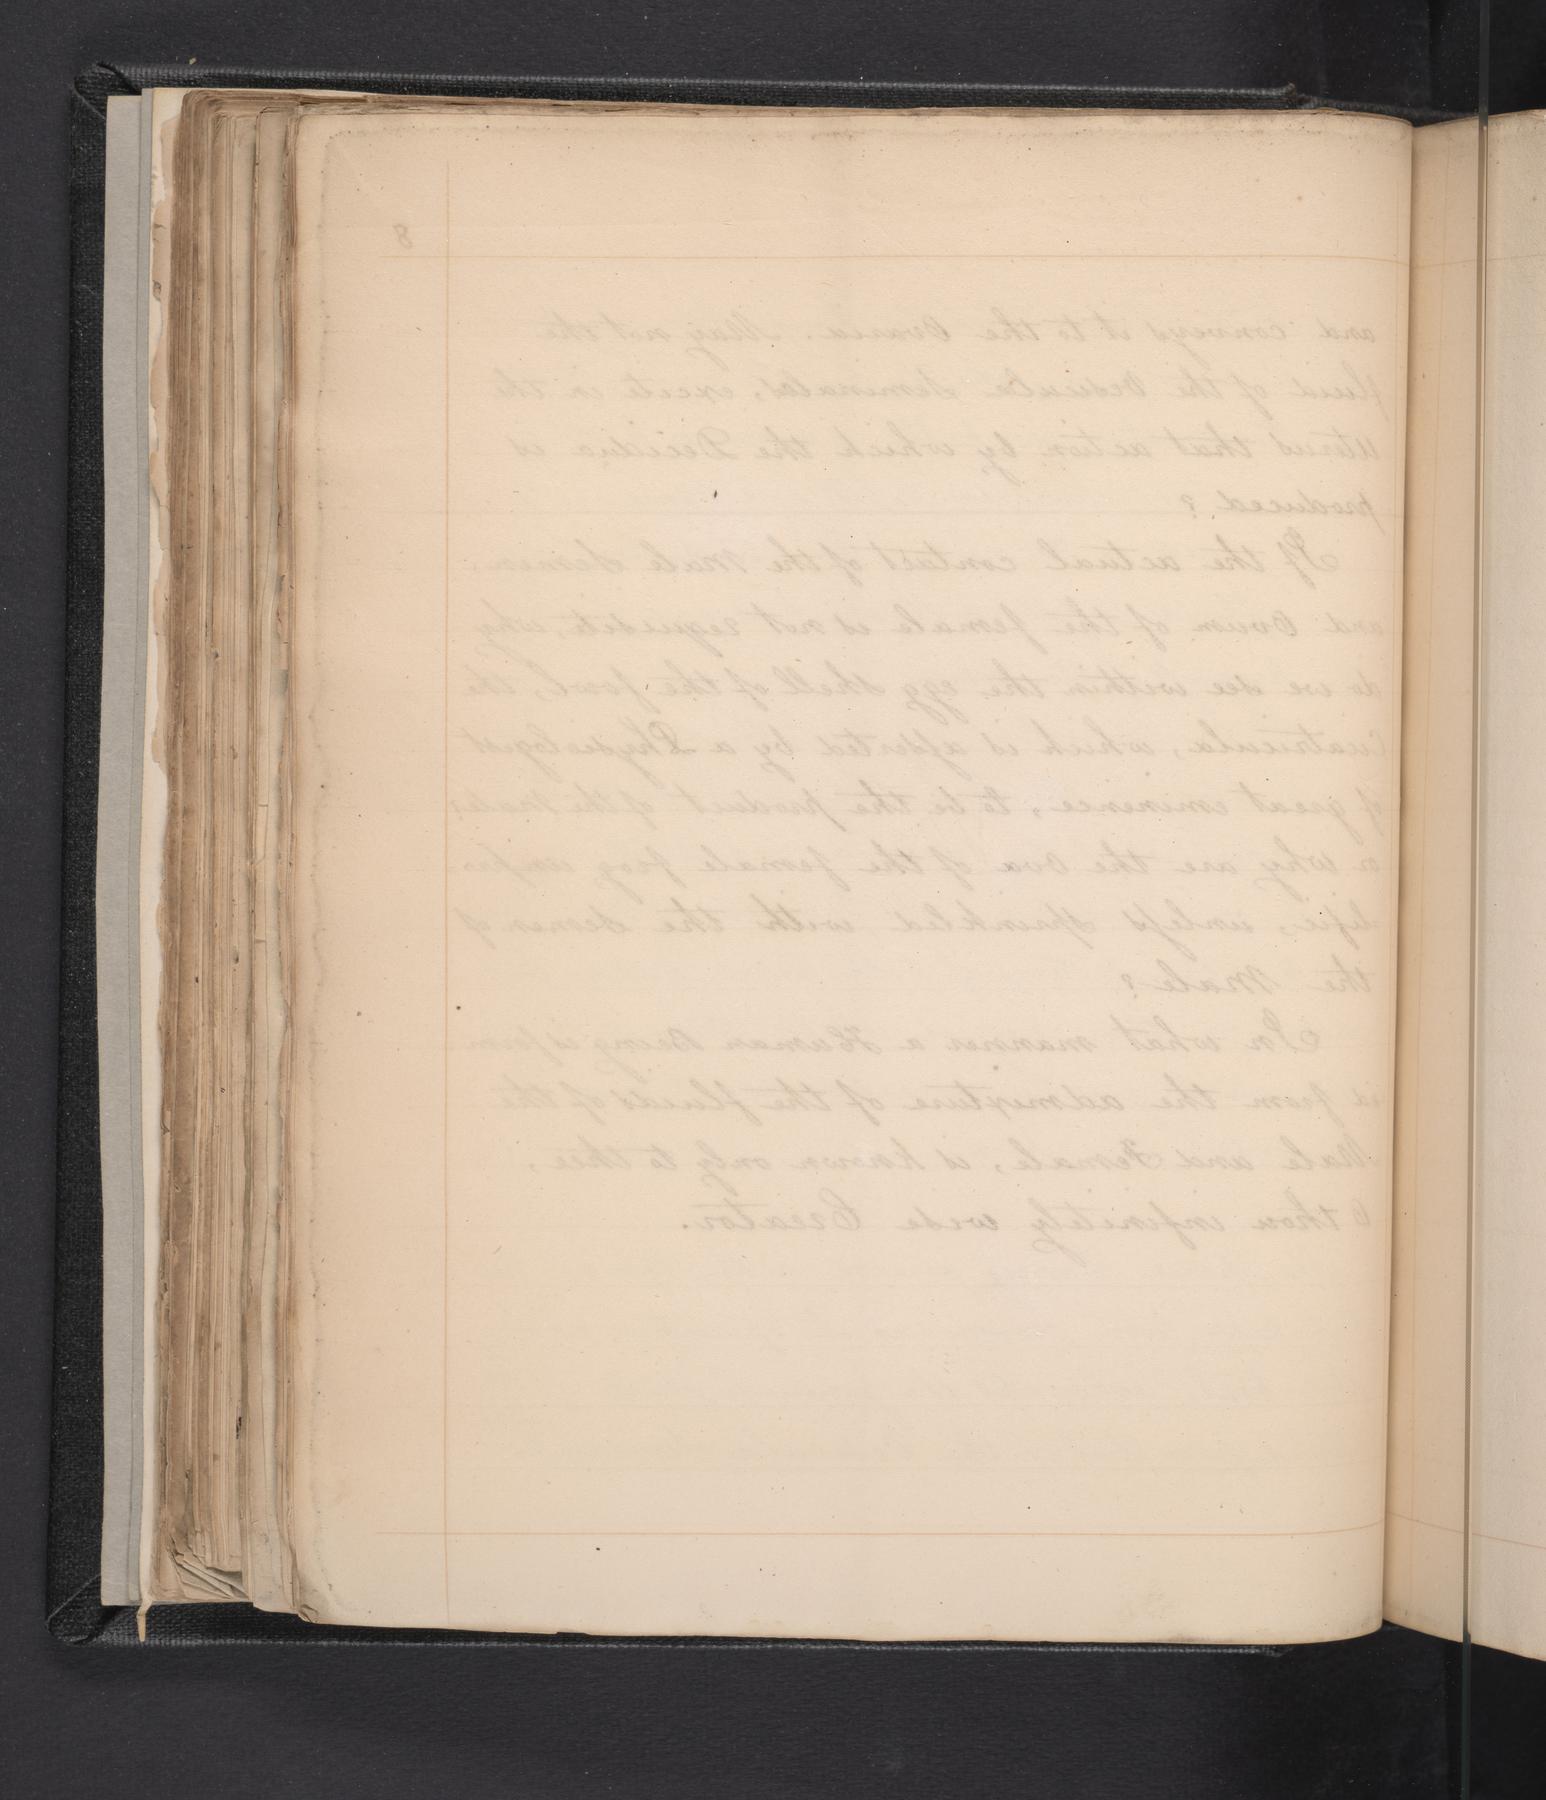 8
and conveys it to the Ovaria. May not the
fluid of the Vesicula Seminales, excite in the
Uterus that action by which the Decidua is
produced?
If the actual contact of the Male Semen
and Ovum of the female is not requisite, why
do we see within the egg shell of the fowl, the
Cicatricula, which is asserted by a Physiologist
of great eminence, to be the product of the Male:
or why are the Ova of the female frog
unless sprinkled with the semen of
the Male?
In what manner a Human Being is form
ed from the admixture of the fluids of the
Male and Female, is known only to thee,
O thou infinitely wise Creator.